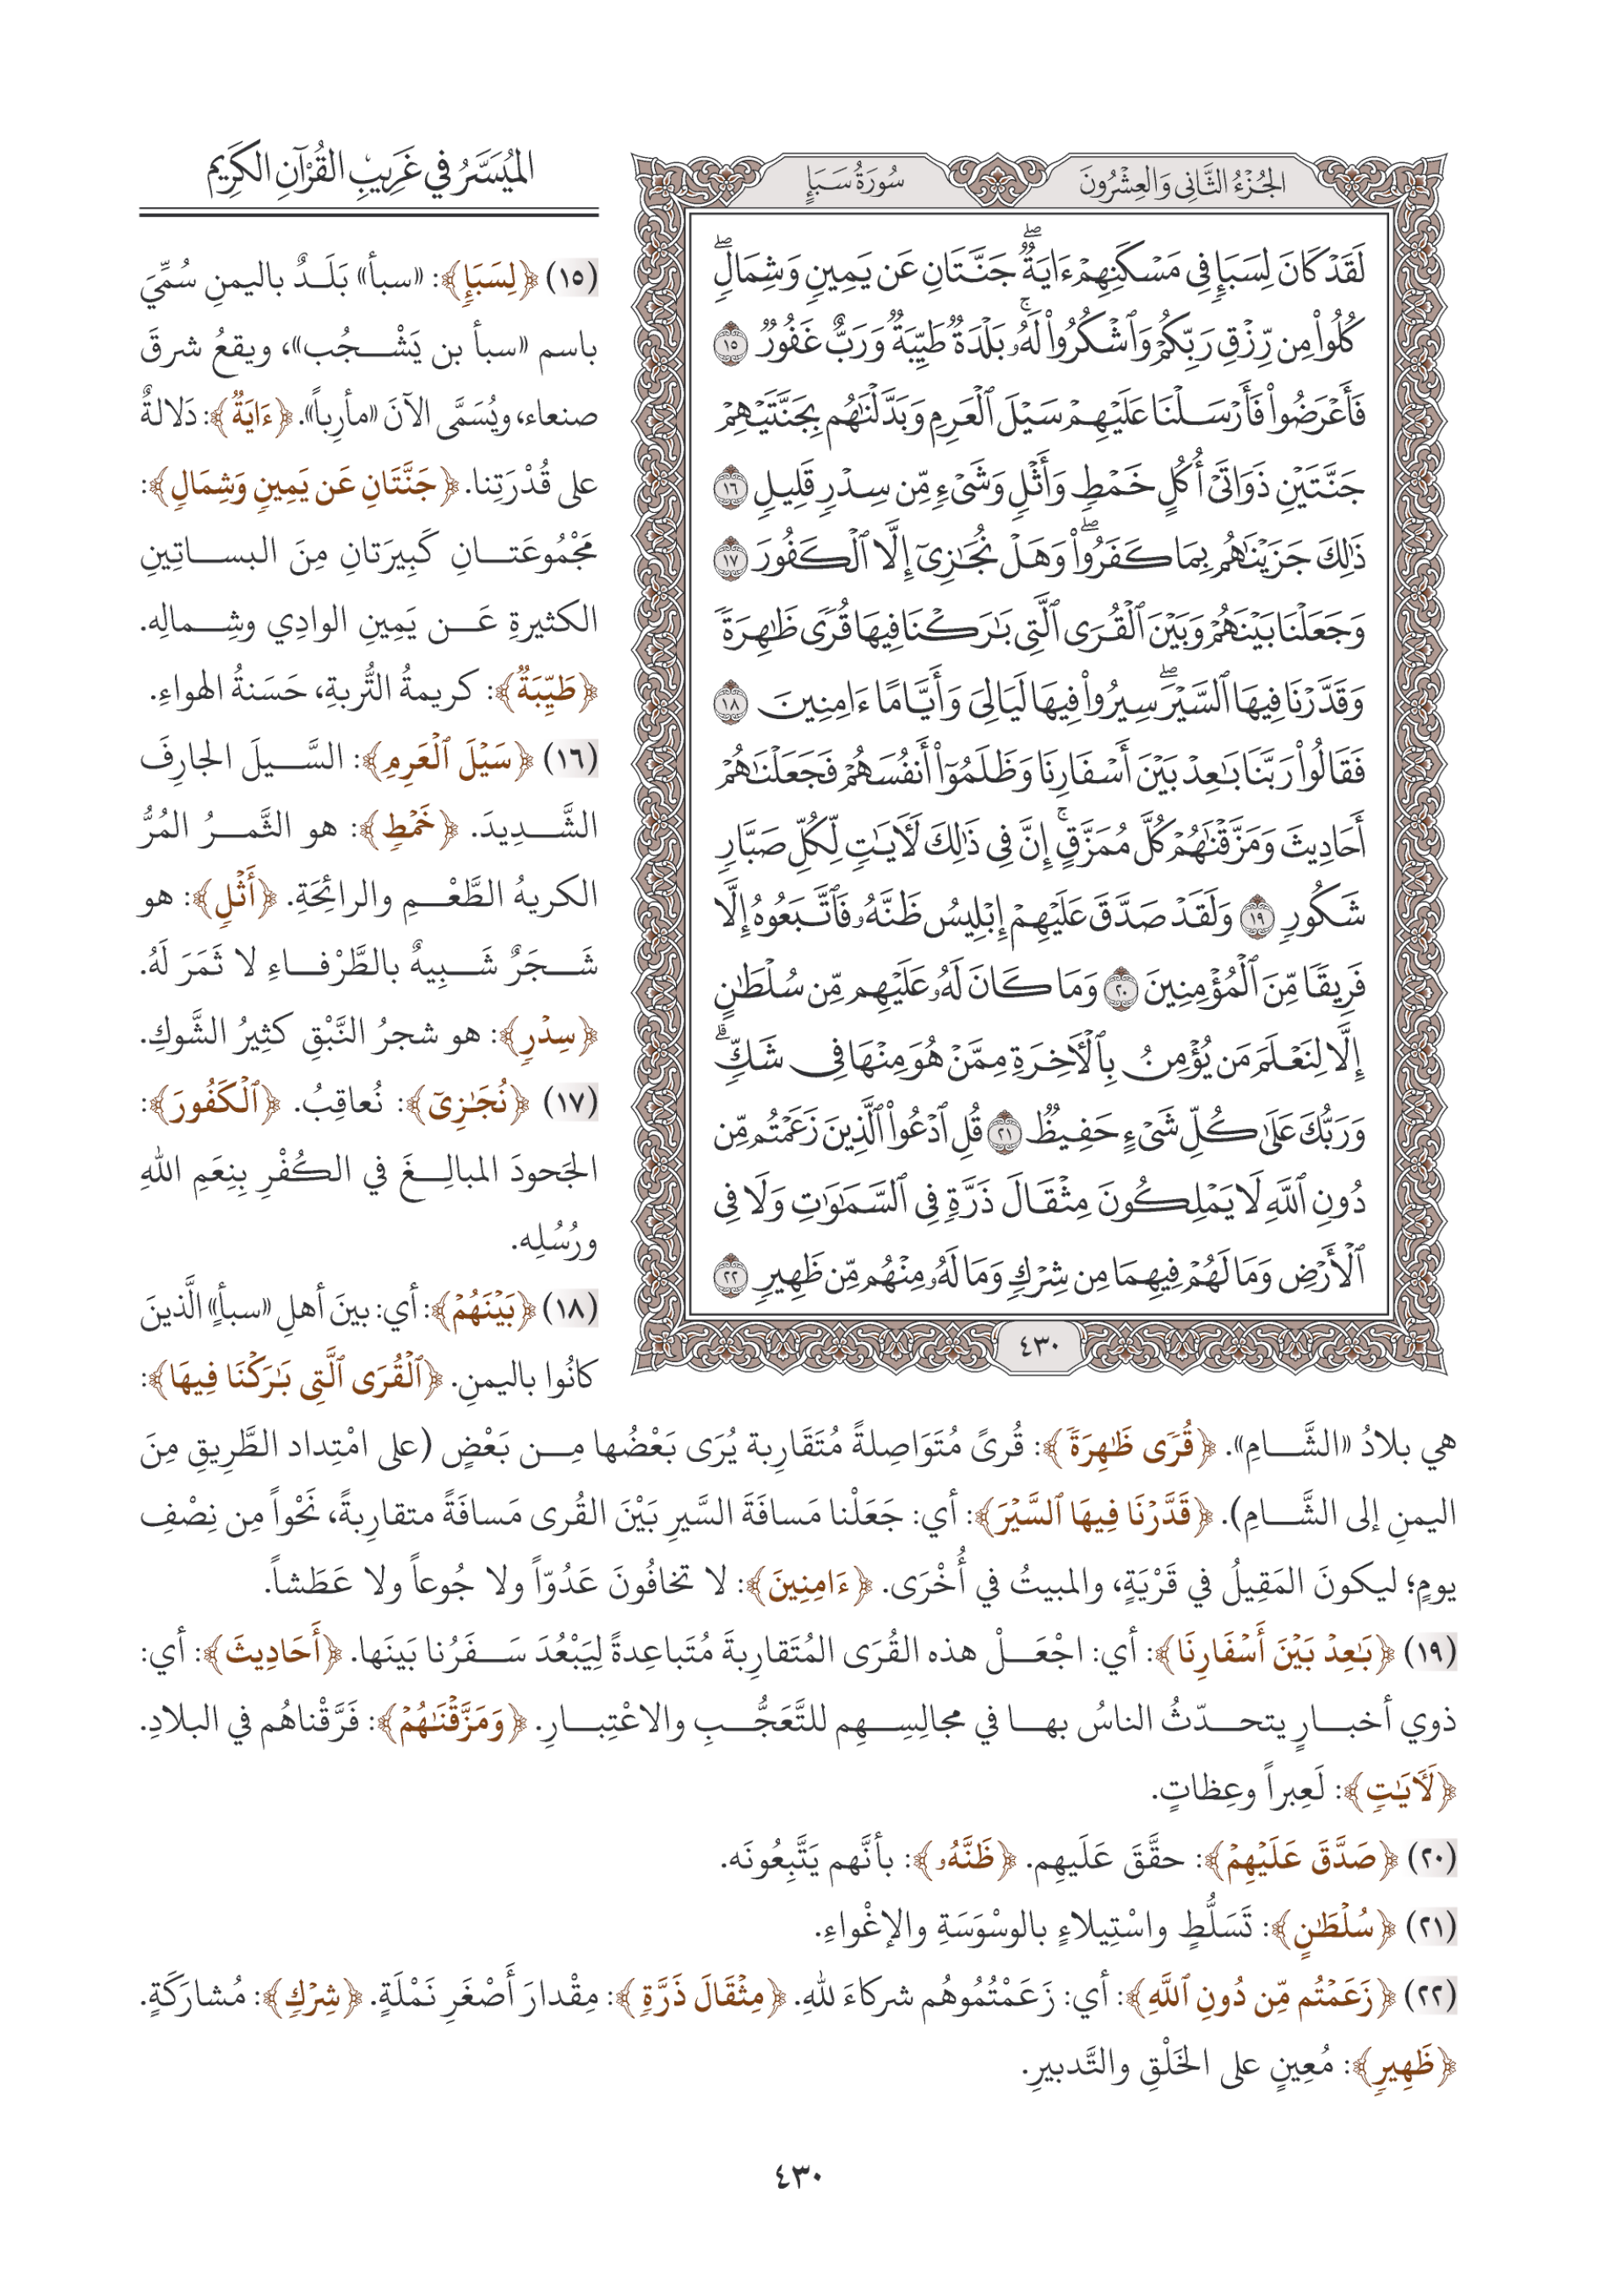 الجُزْءُ الثَّانِي وَالعِشْرُونَ
سُورَةُ سَبَإٍ
لَقَدْ كَانَ لِسَبَإٖ فِي مَسْكَنِهِمْ ءَايَةٞۖ جَنَّتَانِ عَن يَمِينٖ وَشِمَالٖۖ
كُلُواْ مِن رِّزْقِ رَبِّكُمْ وَٱشْكُرُواْ لَهُۥۚ بَلْدَةٞ طَيِّبَةٞ وَرَبٌّ غَفُورٞ ١٥
فَأَعْرَضُواْ فَأَرْسَلْنَا عَلَيْهِمْ سَيْلَ ٱلْعَرِمِ وَبَدَّلْنَٰهُم بِجَنَّتَيْهِمْ
جَنَّتَيْنِ ذَوَاتَيْ أُكُلٍ خَمْطٖ وَأَثْلٖ وَشَيْءٖ مِّن سِدْرٖ قَلِيلٖ ١٦
ذَٰلِكَ جَزَيْنَٰهُم بِمَا كَفَرُواْۖ وَهَلْ نُجَٰزِيٓ إِلَّا ٱلْكَفُورَ ١٧
وَجَعَلْنَا بَيْنَهُمْ وَبَيْنَ ٱلْقُرَى ٱلَّتِي بَٰرَكْنَا فِيهَا قُرٗى ظَٰهِرَةٗ
وَقَدَّرْنَا فِيهَا ٱلسَّيْرَۖ سِيرُواْ فِيهَا لَيَالِيَ وَأَيَّامًا ءَامِنِينَ ١٨
فَقَالُواْ رَبَّنَا بَٰعِدْ بَيْنَ أَسْفَارِنَا وَظَلَمُوٓاْ أَنفُسَهُمْ فَجَعَلْنَٰهُمْ
أَحَادِيثَ وَمَزَّقْنَٰهُمْ كُلَّ مُمَزَّقٍۚ إِنَّ فِي ذَٰلِكَ لَأٓيَٰتٖ لِّكُلِّ صَبَّارٖ
شَكُورٖ ١٩ وَلَقَدْ صَدَّقَ عَلَيْهِمْ إِبْلِيسُ ظَنَّهُۥ فَٱتَّبَعُوهُ إِلَّا
فَرِيقٗا مِّنَ ٱلْمُؤْمِنِينَ ٢٠ وَمَا كَانَ لَهُۥ عَلَيْهِم مِّن سُلْطَٰنٍ
إِلَّا لِنَعْلَمَ مَن يُؤْمِنُ بِٱلْأٓخِرَةِ مِمَّنْ هُوَ مِنْهَا فِي شَكّٖۗ
وَرَبُّكَ عَلَىٰ كُلِّ شَيْءٍ حَفِيظٞ ٢١ قُلِ ٱدْعُواْ ٱلَّذِينَ زَعَمْتُم مِّن
دُونِ ٱللَّهِ لَا يَمْلِكُونَ مِثْقَالَ ذَرَّةٖ فِي ٱلسَّمَٰوَٰتِ وَلَا فِي
ٱلْأَرْضِ وَمَا لَهُمْ فِيهِمَا مِن شِرْكٖ وَمَا لَهُۥ مِنْهُم مِّن ظَهِيرٖ ٢٢
٤٣٠
المُيَسَّرُ في غَرِيبِ القُرْآنِ الكَرِيمِ
(١٥) ﴿لِسَبَإٖ﴾: «سبأ» بَلَدٌ باليمنِ سُمِّيَ
باسم «سبأ بن يَشْجُب»، ويقعُ شرقَ
صنعاء، ويُسَمَّى الآنَ «مأرِباً». ﴿ءَايَةٞ﴾: دَلالةٌ
على قُدْرَتِنا. ﴿جَنَّتَانِ عَن يَمِينٖ وَشِمَالٖ﴾:
مَجْمُوعَتانِ كَبِيرَتانِ مِنَ البساتِينِ
الكثيرةِ عَن يَمِينِ الوادِي وشِمالِه.
﴿طَيِّبَةٞ﴾: كريمةُ التُّربةِ، حَسَنةُ الهواءِ.
(١٦) ﴿سَيْلَ ٱلْعَرِمِ﴾: السَّيلَ الجارِفَ
الشَّدِيدَ. ﴿خَمْطٖ﴾: هو الثَّمرُ المُرُّ
الكريهُ الطَّعْمِ والرائِحَةِ. ﴿أَثْلٖ﴾: هو
شَجَرٌ شَبِيهٌ بالطَّرْفاءِ لا ثَمَرَ لَهُ.
﴿سِدْرٖ﴾: هو شجرُ النَّبْقِ كثِيرُ الشَّوكِ.
(١٧) ﴿نُجَٰزِيٓ﴾: نُعاقِبُ. ﴿ٱلْكَفُورَ﴾:
الجَحودَ المبالِغَ في الكُفْرِ بِنِعَمِ اللهِ
ورُسُلِه.
(١٨) ﴿بَيْنَهُمْ﴾: أي: بينَ أهلِ «سبأٍ» الَّذينَ
كانُوا باليمنِ. ﴿ٱلْقُرَى ٱلَّتِي بَٰرَكْنَا فِيهَا﴾:
هي بلادُ «الشَّامِ». ﴿قُرٗى ظَٰهِرَةٗ﴾: قُرىً مُتَوَاصِلةً مُتَقَاربة يُرَى بَعْضُها مِن بَعْضٍ (على امْتِداد الطَّرِيقِ مِنَ
اليمنِ إلى الشَّامِ). ﴿قَدَّرْنَا فِيهَا ٱلسَّيْرَ﴾: أي: جَعَلْنا مَسافَةَ السَّيرِ بَيْنَ القُرى مَسافَةً متقارِبةً، نَحْواً مِن نِصْفِ
يومٍ؛ ليكونَ المَقِيلُ في قَرْيَةٍ، والمبيتُ في أُخْرَى. ﴿ءَامِنِينَ﴾: لا تخافُونَ عَدُوّاً ولا جُوعاً ولا عَطَشاً.
(١٩) ﴿بَٰعِدْ بَيْنَ أَسْفَارِنَا﴾: أي: اجْعَلْ هذه القُرَى المُتَقارِبةَ مُتَباعِدةً لِيَبْعُدَ سَفَرُنا بَينَها. ﴿أَحَادِيثَ﴾: أي:
ذوي أخبارٍ يتحدّثُ الناسُ بها في مجالِسِهِم للتَّعَجُّبِ والاعْتِبارِ. ﴿وَمَزَّقْنَٰهُمْ﴾: فَرَّقْناهُم في البلادِ.
﴿لَأٓيَٰتٖ﴾: لَعِبراً وعِظاتٍ.
(٢٠) ﴿صَدَّقَ عَلَيْهِمْ﴾: حقَّقَ عَلَيهِم. ﴿ظَنَّهُۥ﴾: بأنَّهم يَتَّبِعُونَه.
(٢١) ﴿سُلْطَٰنٍ﴾: تَسَلُّطٍ واسْتِيلاءٍ بالوسْوَسَةِ والإغْواءِ.
(٢٢) ﴿زَعَمْتُم مِّن دُونِ ٱللَّهِ﴾: أي: زَعَمْتُمُوهُم شركاءَ للهِ. ﴿مِثْقَالَ ذَرَّةٖ﴾: مِقْدارَ أَصْغَرِ نَمْلَةٍ. ﴿شِرْكٖ﴾: مُشارَكَةٍ.
﴿ظَهِيرٖ﴾: مُعِينٍ على الخَلْقِ والتَّدبيرِ.
٤٣٠